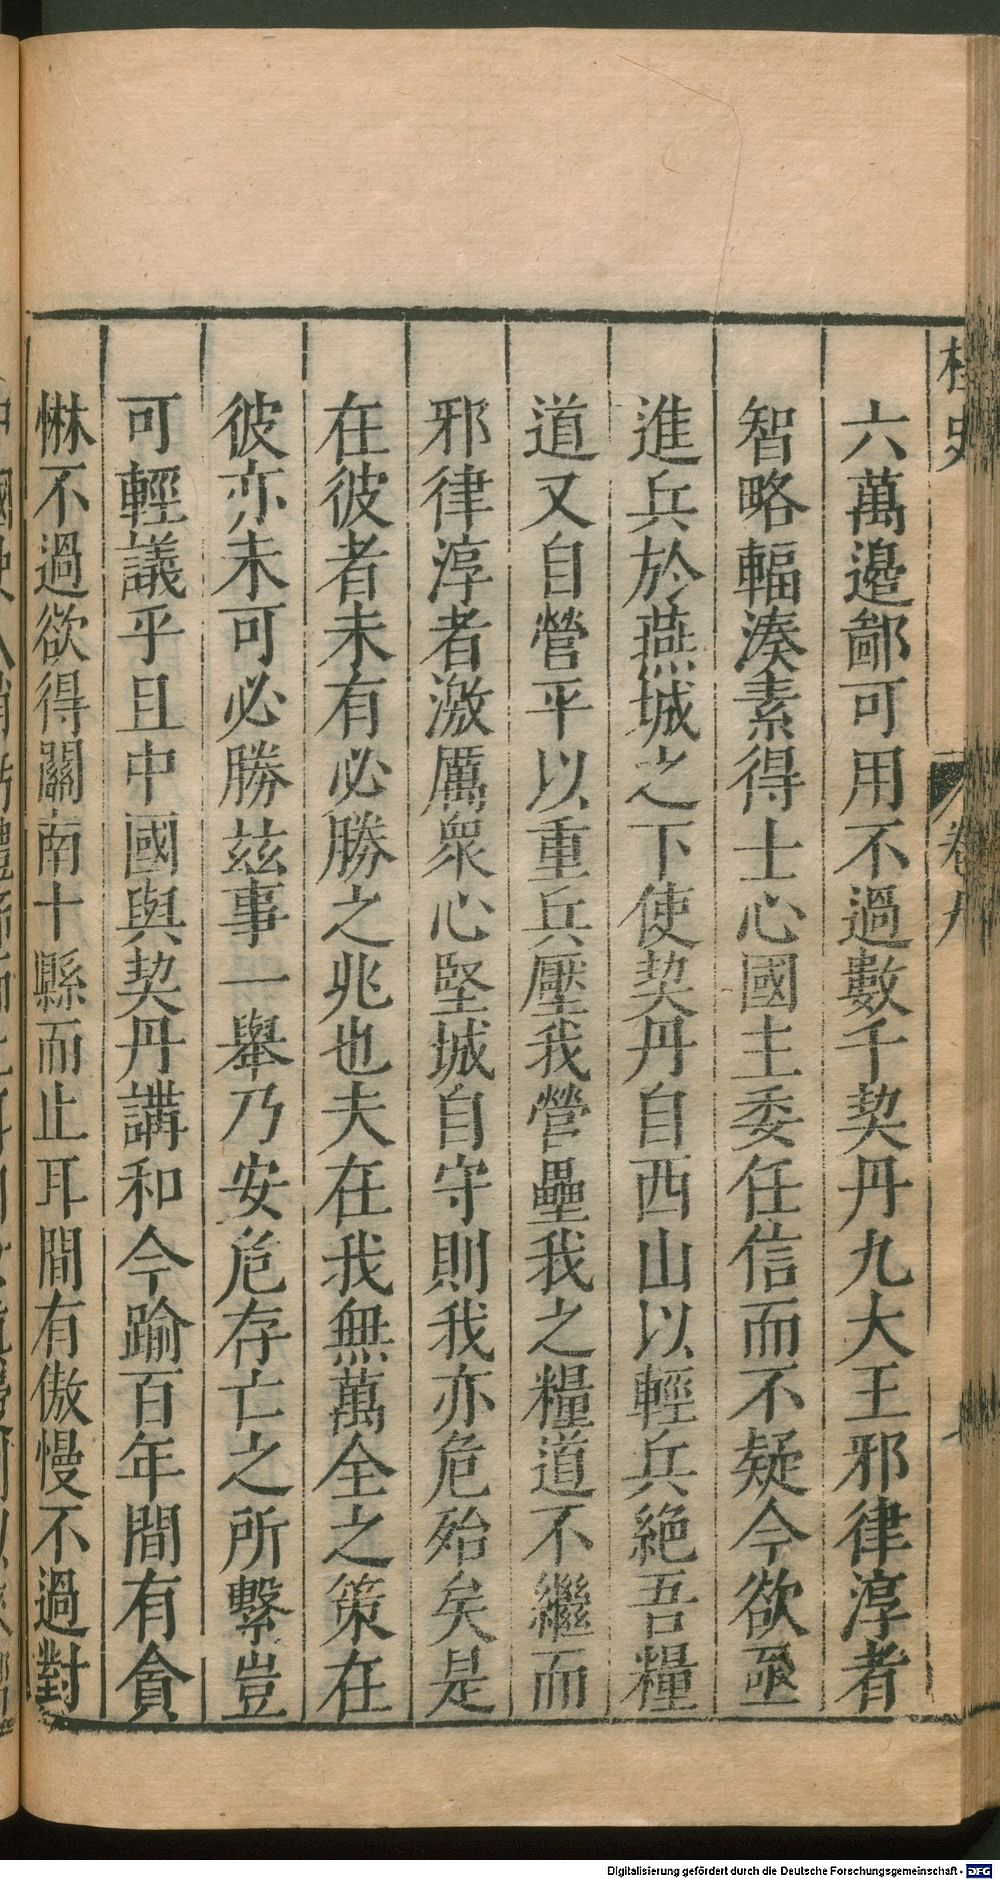 桯史
卷九
六萬邊鄙可用不過數千契丹九大王邪律淳者
智略輻湊素得士心國主委任信而不疑今欲亟
進兵於燕城之下使契丹自西山以輕兵絶吾糧
道又自營平以重兵壓我營壘我之糧道不繼而
邪律淳者激厲衆心堅城自守則我亦危殆矣是
在彼者未有必勝之兆也夫在我無萬全之策在
彼亦未可必勝兹事一舉乃安危存亡之所繫豈
可輕議乎且中國與契丹講和今踰百年間有貪
惏不過欲得關南十縣而止耳間有傲慢不過對
Digitalisierung gefördert durch die Deutsche Forschungsgemeinschaft - DFG